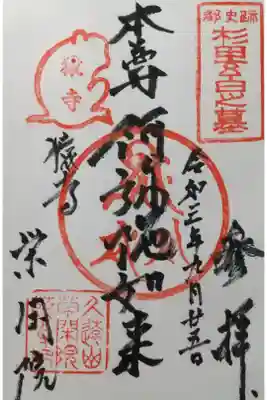 都史跡
杉田玄白之墓
奉拝
令和三年九月廿五日
本尊 阿弥陀如来
猿寺
猿寺
栄閑院
久遠山
栄閑院